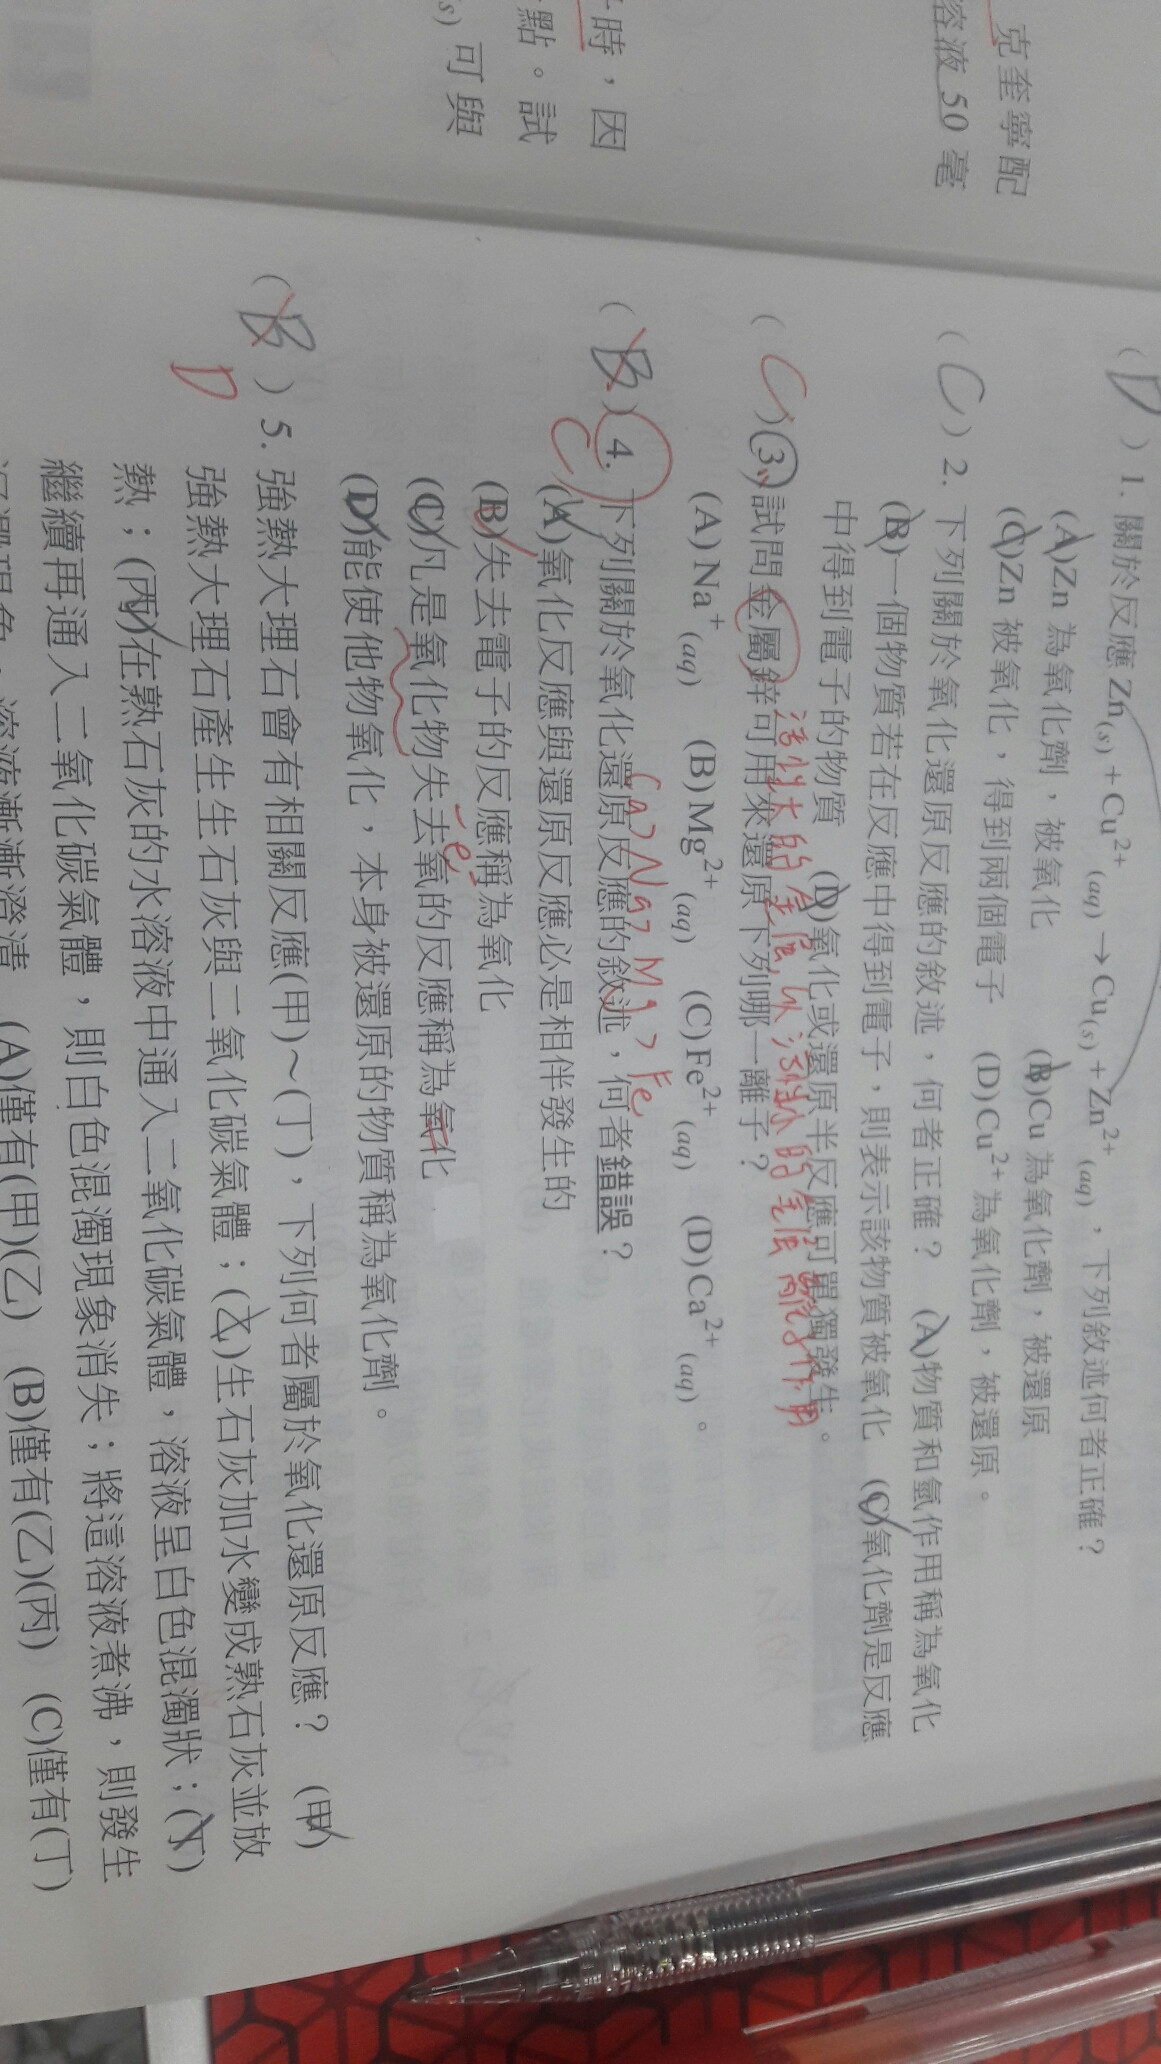 克奎寧配
溶液 50 毫
時，因
點。試
(s) 可與
( D ) 1. 關於反應 Zn(s) + Cu²⁺(aq) → Cu(s) + Zn²⁺(aq)，下列敘述何者正確？
(A)Zn 為氧化劑，被氧化 (B)Cu 為氧化劑，被還原
(C)Zn 被氧化，得到兩個電子 (D)Cu²⁺ 為氧化劑，被還原。
( C ) 2. 下列關於氧化還原反應的敘述，何者正確？ (A)物質和氫作用稱為氧化
(B)一個物質若在反應中得到電子，則表示該物質被氧化 (C)氧化劑是反應
中得到電子的物質 (D)氧化或還原半反應可單獨發生。
活性大的金屬，以活性小的金屬離子作用
( C ) 3. 試問金屬鋅可用來還原下列哪一離子？
(A)Na⁺(aq) (B)Mg²⁺(aq) (C)Fe²⁺(aq) (D)Ca²⁺(aq)。
Ca > Na > Mg > Fe
( B ) C 4. 下列關於氧化還原反應的敘述，何者錯誤？
(A)氧化反應與還原反應必是相伴發生的
(B)失去電子的反應稱為氧化
-e⁻
(C)凡是氧化物失去氧的反應稱為氧化
(D)能使他物氧化，本身被還原的物質稱為氧化劑。
( B ) D 5. 強熱大理石會有相關反應(甲)～(丁)，下列何者屬於氧化還原反應？ (甲)
強熱大理石產生生石灰與二氧化碳氣體；(乙)生石灰加水變成熟石灰並放
熱；(丙)在熟石灰的水溶液中通入二氧化碳氣體，溶液呈白色混濁狀；(丁)
繼續再通入二氧化碳氣體，則白色混濁現象消失；將這溶液煮沸，則發生
沉澱現象，溶液漸漸澄清 (A)僅有(甲)(乙) (B)僅有(乙)(丙) (C)僅有(丁)